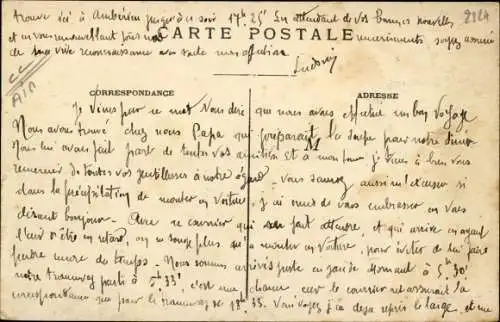 trouve ici à Ambérieu jusqu'à ce soir 17h 25' En attendant de vos bonnes nouvelles 2124
et en vous renouvellant pour nos remerciements soyez assuré
CARTE POSTALE
de ma vive reconnaissance
Ludovic
CC
AIN
CORRESPONDANCE
ADRESSE
M
Je viens par ce mot vous dire que nous avons effectué un bon voyage
Nous avons trouvé chez nous Papa qui préparait la soupe pour notre dîner
Nous lui avons fait part de toutes vos amitiés et à mon tour je tiens à bien vous
remercier de toutes vos gentillesses à notre égard. Vous saurez aussi m'excuser si
dans la précipitation de monter en voiture j'ai omis de vous embrasser en vous
disant bonjour. Avec ce courrier qui se fait attendre, et qui arrive en ayant
l'air d'être en retard, on ne songe plus qu'à monter en voiture, pour éviter de lui faire
perdre encore du temps. Nous sommes arrivés juste en gare à 5h 30'
notre tramway parti à 5h 33', c'est une chance car le courrier assurait la
correspondance que pour le tramway de 18h 35. Vous voyez j'ai déjà repris le large, et me